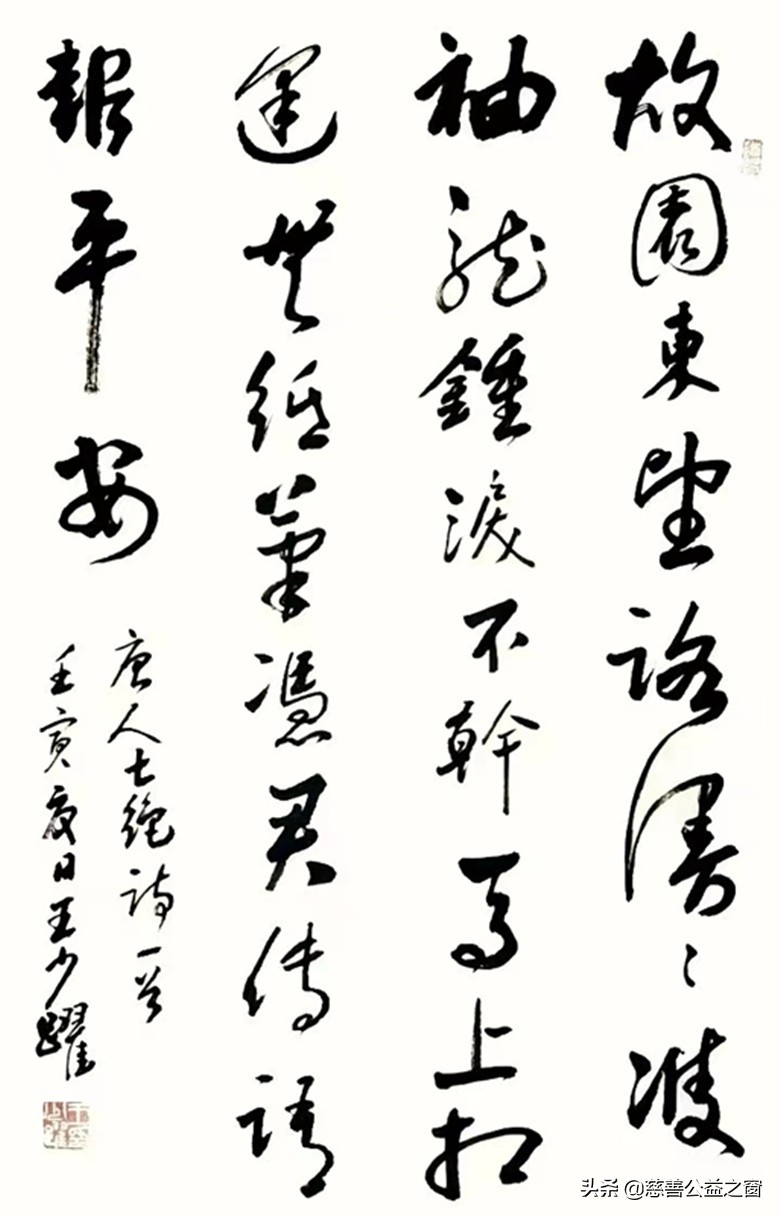 故園東望路漫〻雙
袖龍鍾淚不幹馬上相
逢無紙筆憑君傳語
報平安
唐人七絕詩一首
壬寅夏日王少躍
头条 @慈善公益之窗